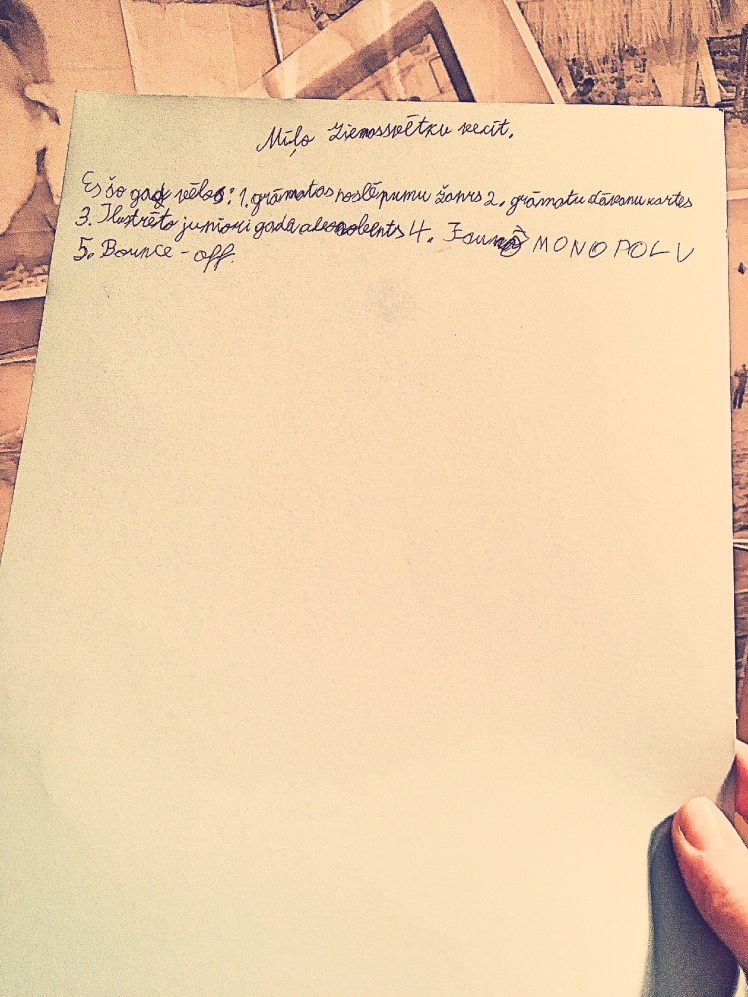 Mīļo Ziemassvētku vecīt.
Es šo gad vēlos: 1. grāmatas noslēpumu žanrs 2. grāmatu dāvanu kartes
3. Ilustrēto juniori gada abonents 4. Jauno MONOPOLU
5. Bounce-off.